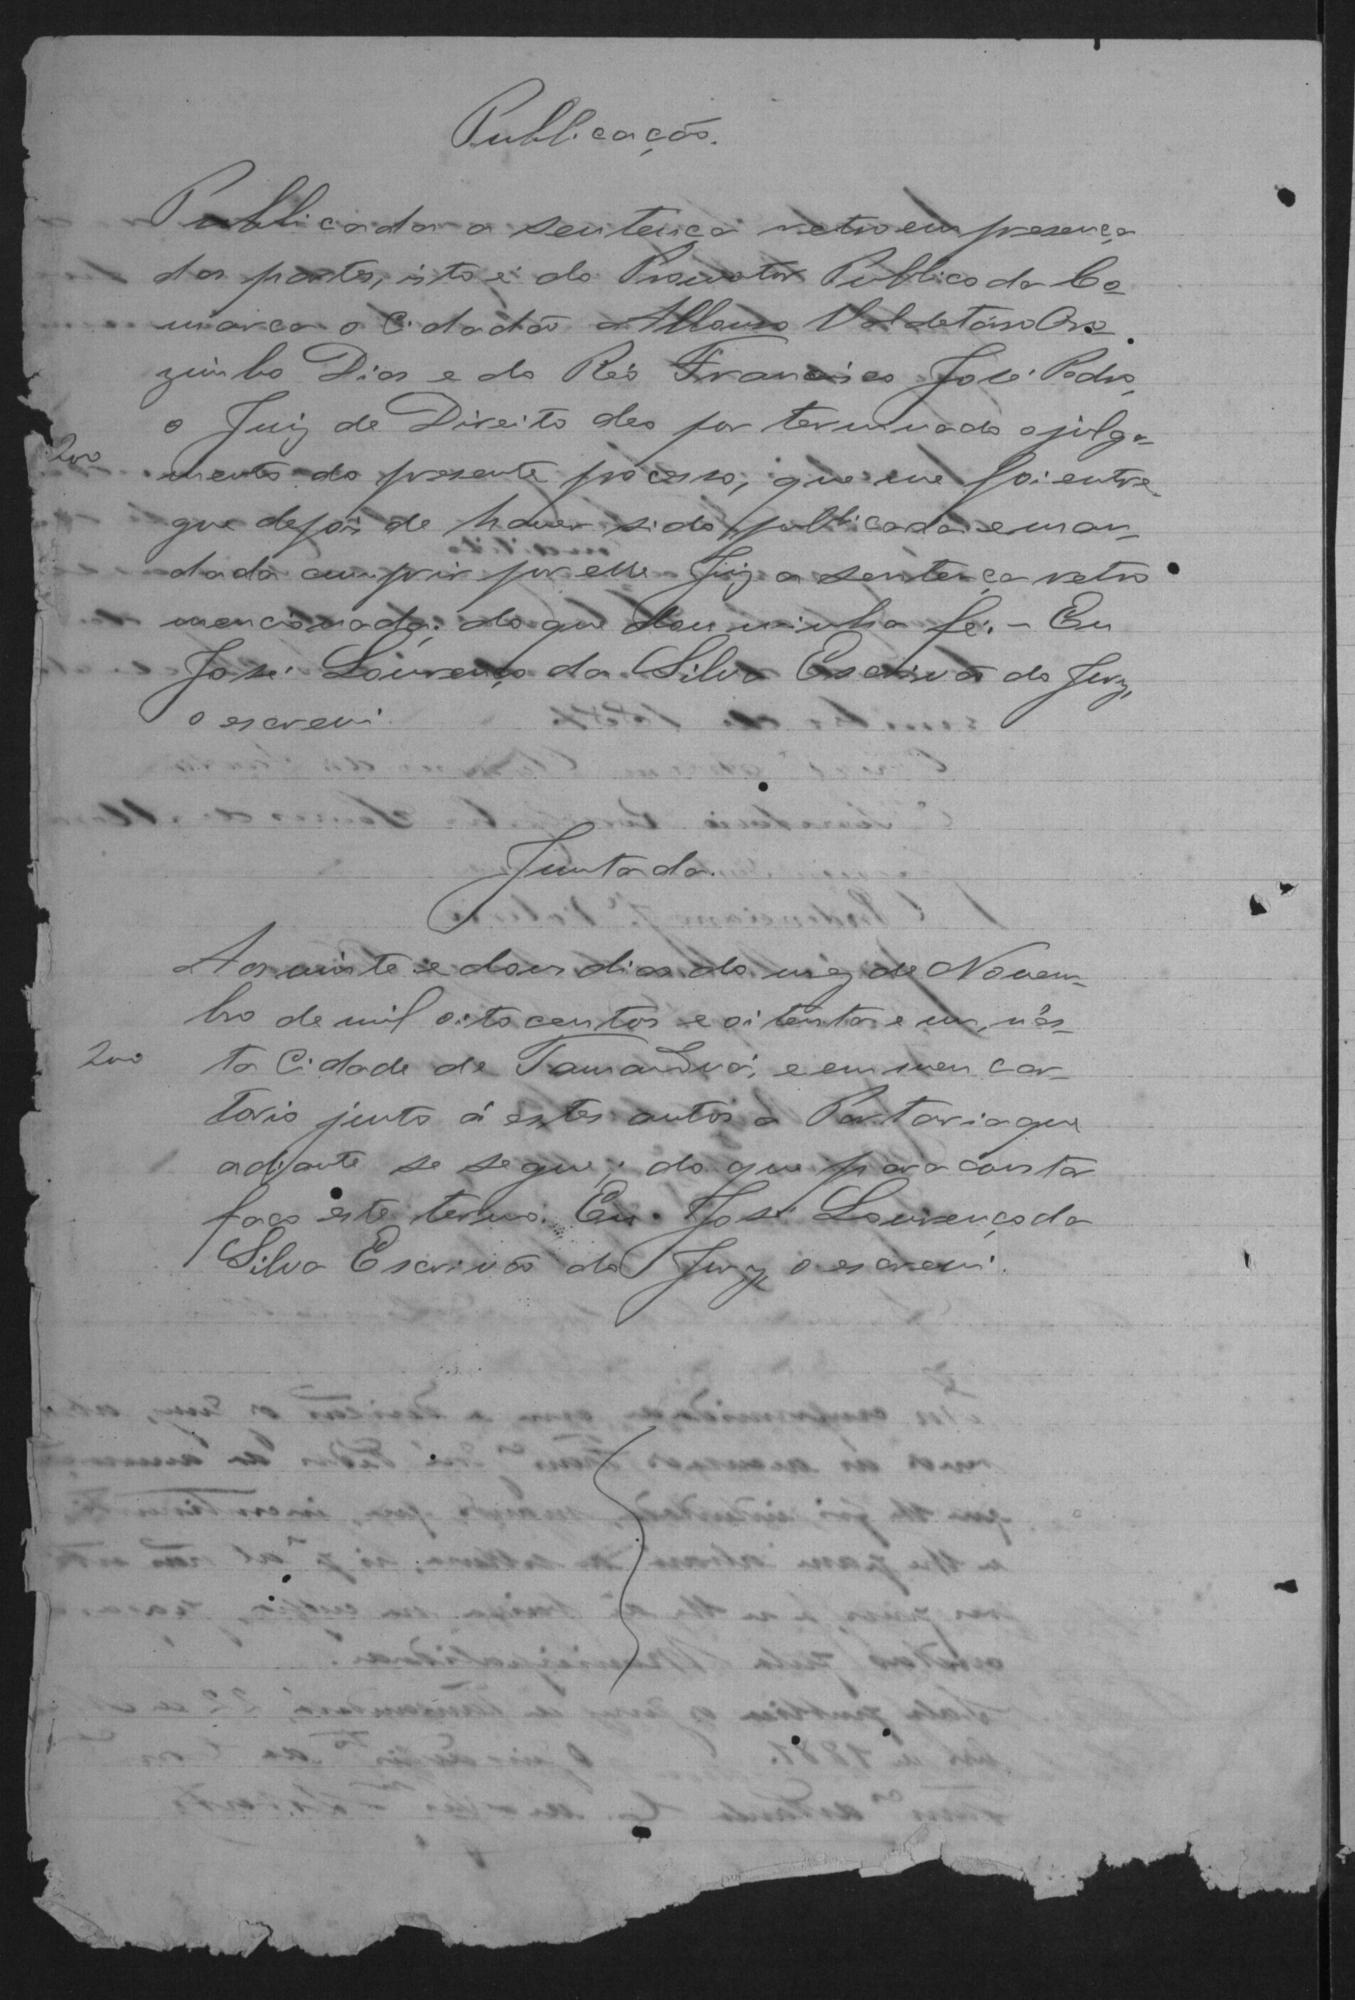 Publicação.
Publicada a sentença retro em presença
das partes, isto é do Promotor Publico da Co=
marca o Cidadão Affonso Valdetáro Oro
zimbo Dias e do Réo Francisco José Pedro,
o Juiz de Direito deo por terminado o julga=
200
mento do presente processo, que me foi entre
gue depois de haver sido publicada e man=
dada cumprir por elle Juiz a sentença retro
mencionada; do que dou minha fé. - Eu
José Lourenço da Silva Escrivão do Jury,
o escrevi.
Juntada.
Aos vinte e dous dias do mez de Novem=
bro de mil oitocentos e oitenta e um, nés=
200
ta Cidade de Tamanduá, e em meu car=
torio junto á estes autos a Portaria que
adiante se segue; do que para constar
faço este termo. Eu José Lourenço da
Silva Escrivão do Jury, o escrevi.